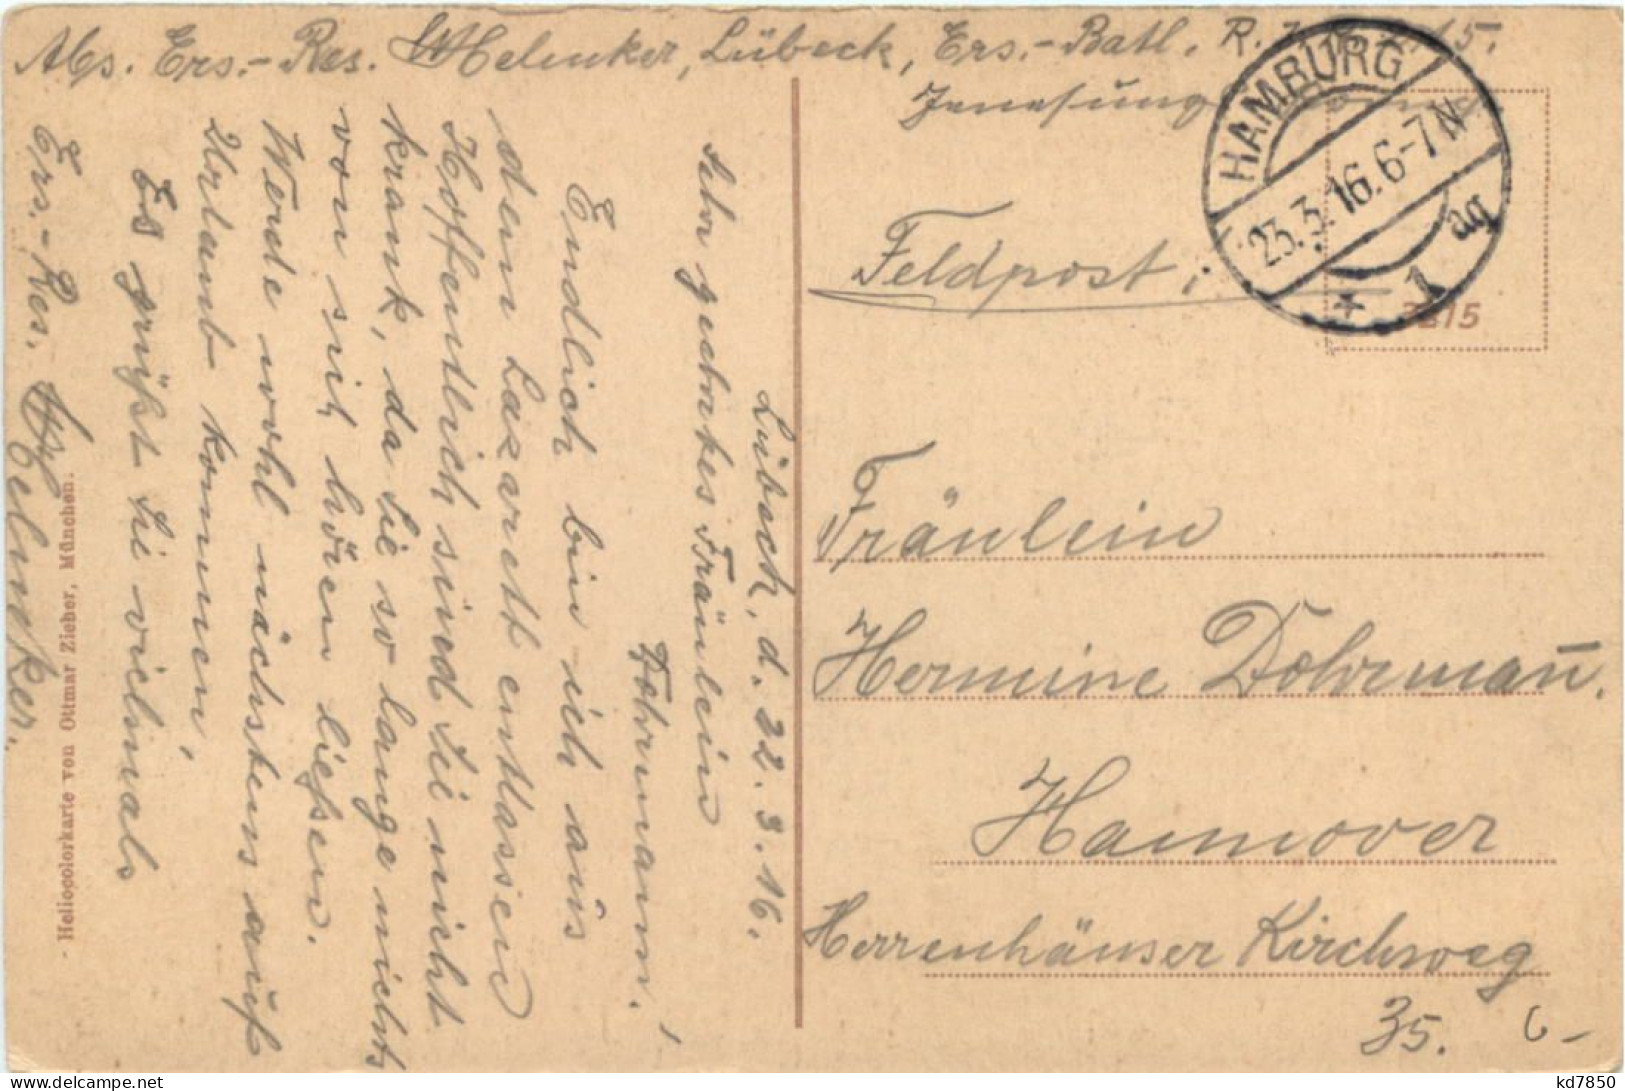 Abs. Ers.-Res. Helmker, Lübeck, Ers.-Batl. R.
HAMBURG
23.3.16.6-7N
ag
* 1
3215
Feldpost;
Fräulein
Hermine Dohrmañ.
Hannover
Herrenhäuser Kirchweg
35.
Lübeck, d. 22.3.16.
Sehr geehrtes Fräulein
Dohrmann!
Endlich bin ich aus
dem Lazarett entlassen
Hoffentlich sind Sie nicht
krank, da Sie so lange nichts
von sich hören ließen.
Werde wohl nächstens auf
Urlaub kommen,
Es grüßt Sie vielmals
Ers.-Res. Helmker.
Heliocolorkarte von Ottmar Zieher, München.
kd7850